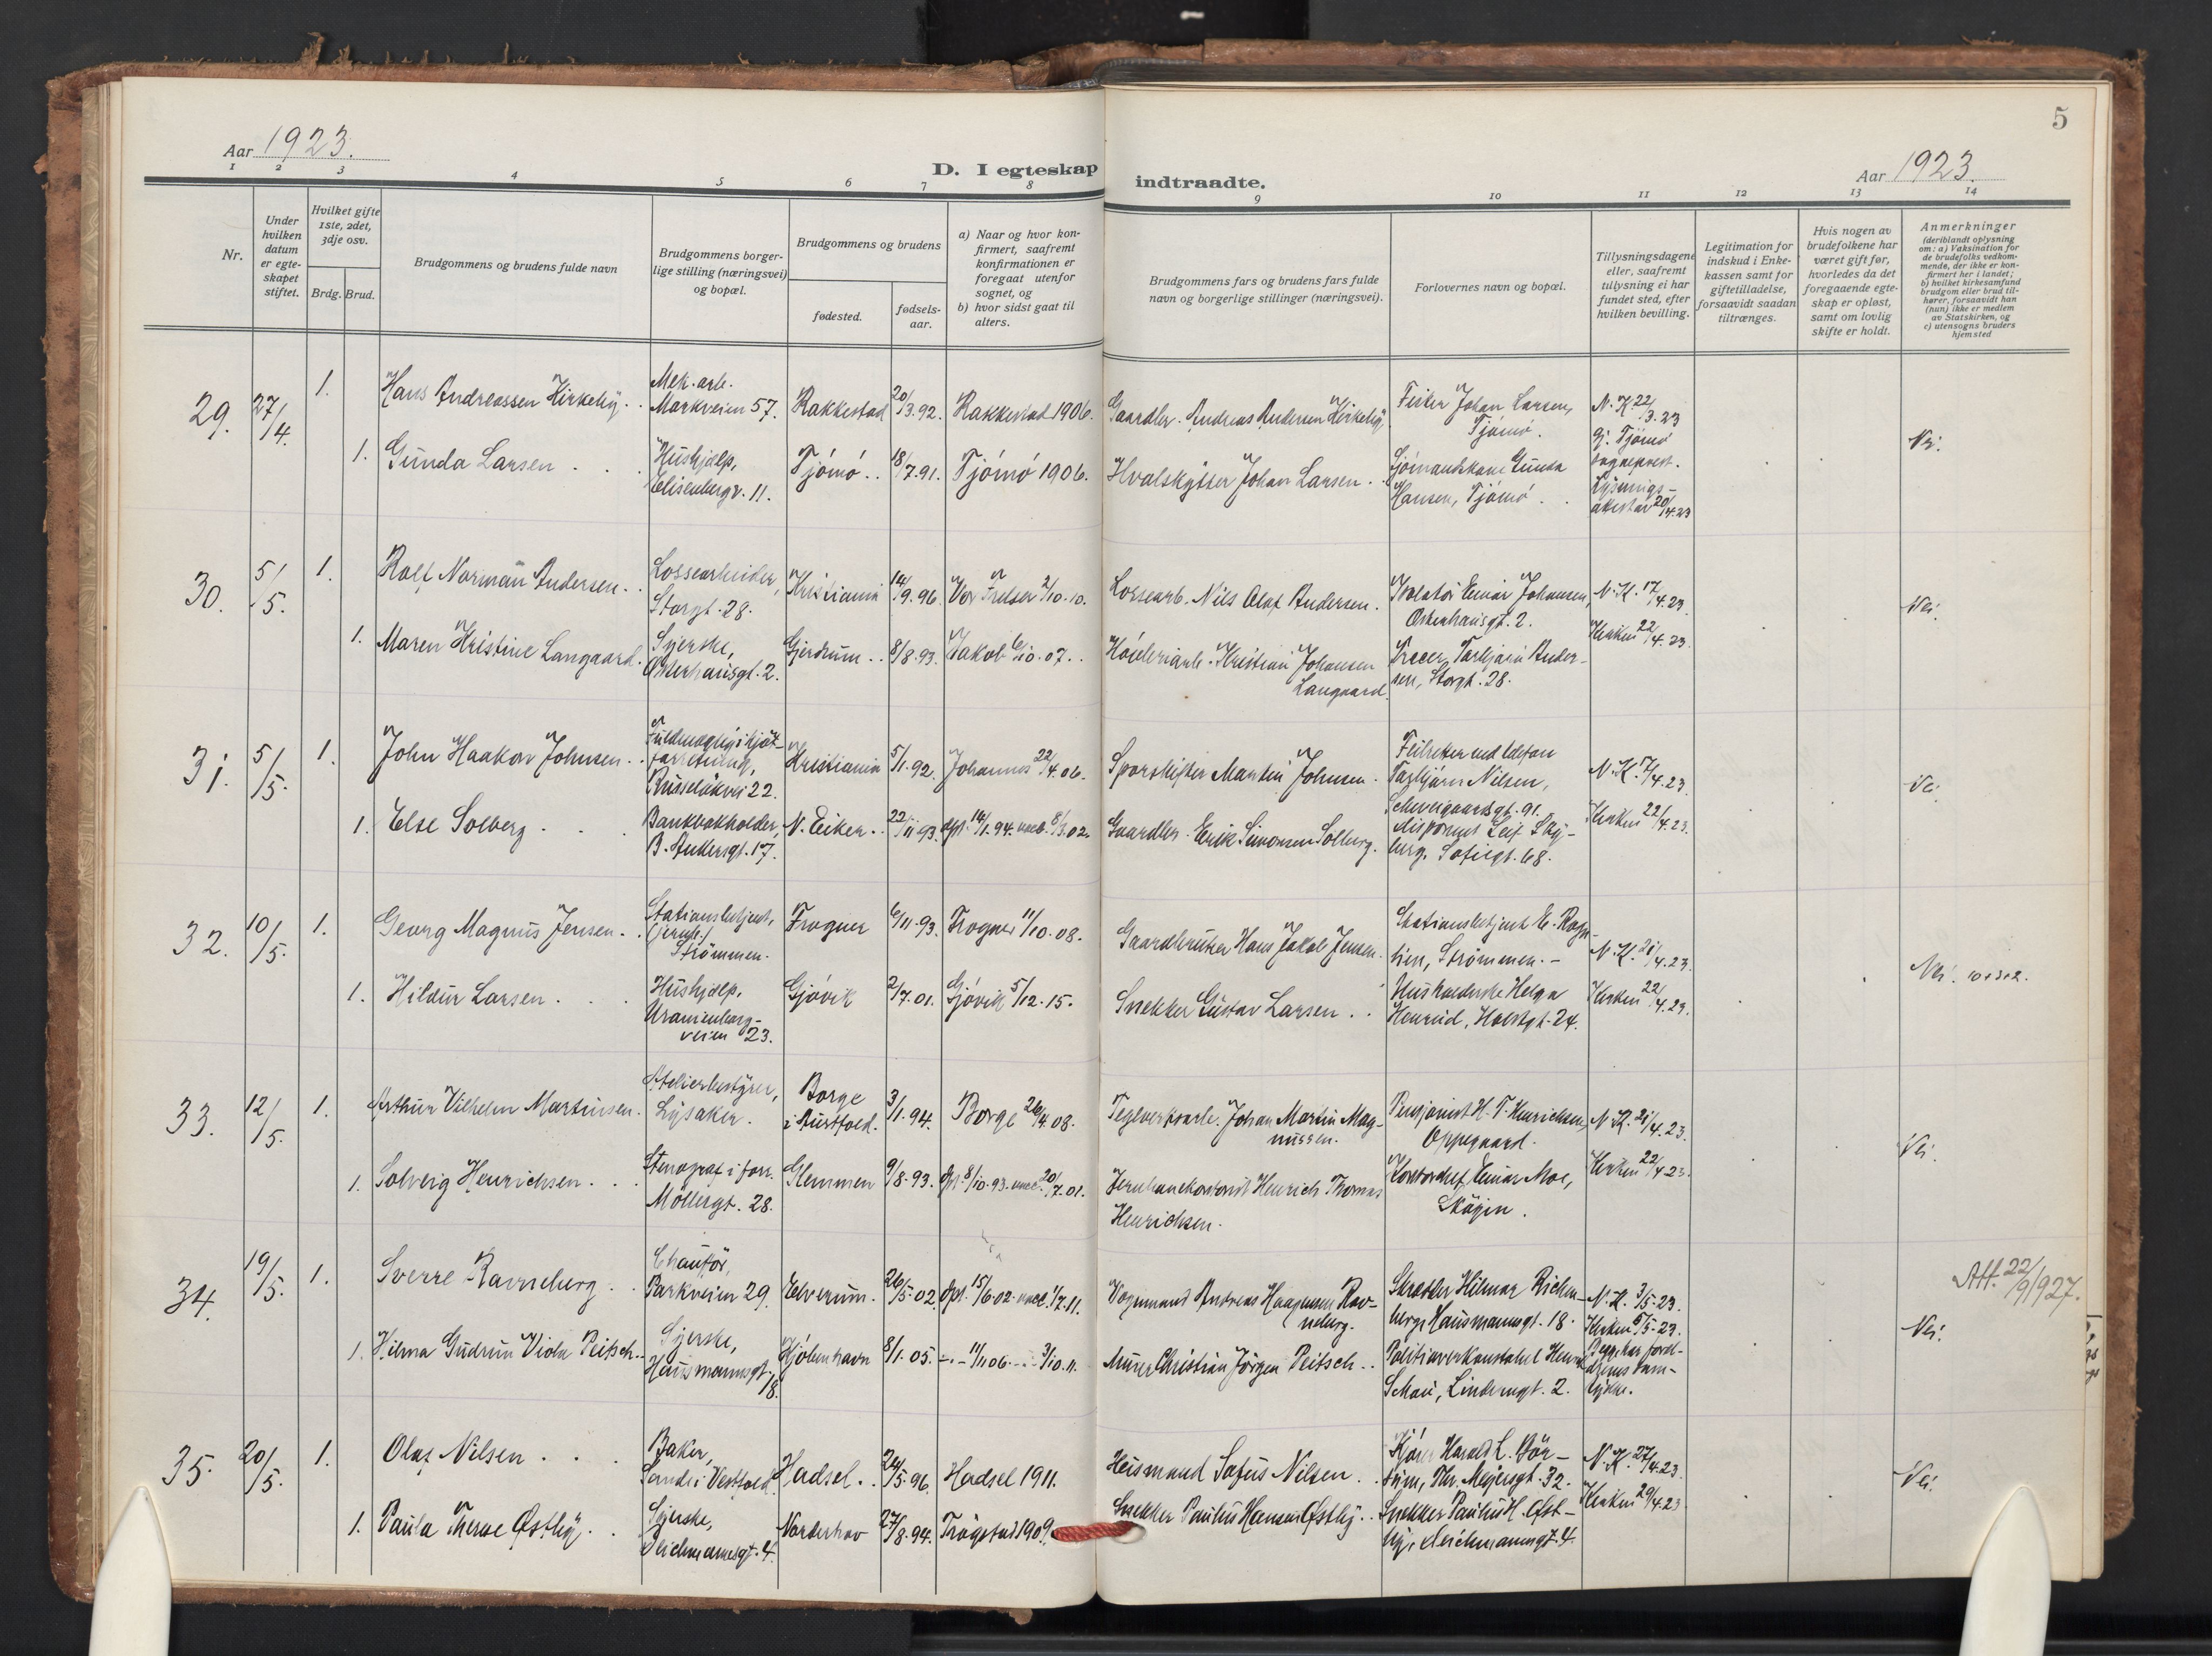 5
Aar 1923.
Aar 1923.
D. I egteskap indtraadte.
1 2 3 4 5 6 7 8 9 10 11 12 13 14
Nr.
Under hvilken datum er egteskapet stiftet.
Hvilket gifte 1ste, 2det, 3dje osv.
Brdg. Brud.
Brudgommens og brudens fulde navn
Brudgommens borgerlige stilling (næringsvei) og bopæl.
Brudgommens og brudens
fødested.
fødselsaar.
a) Naar og hvor konfirmert, saafremt konfirmationen er foregaat utenfor sognet, og
b) hvor sidst gaat til alters.
Brudgommens fars og brudens fars fulde navn og borgerlige stillinger (næringsvei).
Forlovernes navn og bopæl.
Tillysningsdagene eller, saafremt tillysning ei har fundet sted, efter hvilken bevilling.
Legitimation for indskud i Enkekassen samt for giftetilladelse, forsaavidt saadan tiltrænges.
Hvis nogen av brudefolkene har været gift før, hvorledes da det foregaaende egteskap er opløst, samt om lovlig skifte er holdt.
Anmerkninger
(deriblandt oplysning om: a) Vaksination for de brudefolks vedkommende, der ikke er konfirmert her i landet; b) hvilket kirkesamfund brudgom eller brud tilhører, forsaavidt han (hun) ikke er medlem av Statskirken, og c) utensogns bruders hjemsted
29. 27/4. 1. Hans Andreassen Kirkeby.
Mek. arb.
Markveien 57.
Rakkestad 20/3.92. Rakkestad 1906.
Gaardbr. Andreas Andersen Kirkeby.
Fisker Johan Larsen,
Tjømø.
N. K. 22/3.23
Gj. Tjømø
sogneprest.
Lysnings-
attest av 20/4.23
Nei.
1. Gunda Larsen
Hushjelp,
Elisenbergv. 11.
Tjömö 18/7.91. Tjömö 1906.
Hvalskytter Johan Larsen
Sjömandskone Gunda
Hansen, Tjömö
30. 5/5. 1. Rolf Norman Andersen.
Lossearbeider,
Storgt. 28.
Kristiania 14/9.96. Vor Frelser 2/10.10.
Lossearb. Nils Olaf Andersen.
Isolatør Einar Johansen,
Osterhausgt. 2.
N. K. 17/4.23.
Kirken 22/4.23.
Nei.
1. Maren Kristine Langaard.
Syerske,
Osterhausgt. 2.
Gjerdrum 8/8.93. Jakob 6/10.07.
Kristian Johansen
Langaard.
Torbjørn Ander-
sen, Storgt. 28.
31. 5/5. 1. John Haakon Johnsen
Fuldmægtig i kjøt-
forretning,
Ruseløkvei 22.
Kristiania 5/1.92. Johannes 22/4.06.
Sporskifter Martin Johnsen.
Torbjörn Nilsen,
Schweigaardsgt. 91.
N. K. 17/4.23.
Kirken 22/4.23.
Nei.
1. Else Solberg
Bankbokholder,
B. Ankersgt. 17.
N. Eiker 22/11.93. dpt. 14/1.94. vacc. 8/3.02.
Gaardbr. Erik Simonsen Solberg.
Disponent Leif Sky-
berg, Sofiegt. 68.
32. 10/5. 1. Georg Magnus Jensen
Stationsbetjent,
(jernb.)
Strömmen.
Frogner 6/11.93. Frogner 11/10.08.
Gaardbruker Hans Jakob Jensen.
Stationsbetjent E. Rogn-
lien, Strømmen.
N. K. 21/4.23.
Kirken 22/4.23.
Nei.
1. Hildur Larsen
Hushjelp,
Uranienborg-
veien 23.
Gjøvik 2/7.01. Gjøvik 5/12.15.
Snekker Gustav Larsen
Husholderske Helga
Henrud, Holstgt. 24.
33. 12/5. 1. Arthur Vilhelm Martinsen.
Atelierbestyrer,
Lysaker.
Borge
i Østfold.
3/1.94. Borge 26/4.08.
Teglverksarb. Johan Martin Mag-
nussen.
Pensjonist H. T. Henrichsen,
Oppegaard.
N. K. 21/4.23.
Kirken 22/4.23.
Nei.
1. Solveig Henrichsen
Stenograf i forr.
Möllergt. 28.
Glemmen 9/8.93. dpt. 8/10.93. vacc. 20/7.01.
Henrich Thomas
Henrichsen.
Kontorchef Einar Moe,
Skøyen.
34. 19/5. 1. Sverre Ravneberg
Chauffør,
Parkveien 29.
Elverum. 26/5.02. dpt. 15/6.02. vacc. 1/7.11.
Vognmand Andreas Haagensen Rav-
neberg.
Skrædder Hilmar Richen-
berg, Hausmannsgt. 18.
N. K. 3/5.23.
Kirken 6/5.23.
Begge har foræl-
drenes sam-
tykke.
Att. 22/9 1927.
Nei.
1. Hilma Gudrun Viola Peitsch
Syerske,
Hausmannsgt.
18.
Kjöbenhavn 8/1.05. 11/11 06. 3/10.11.
Murer Christian Jörgen Peitsch
Politioverkonstabel Henrik
Schou, Linderngt. 2.
35. 20/5. 1. Olaf Nilsen
Baker,
Sande i Vestfold.
Hadsel. 24/5.96. Hadsel 1911.
Husmand Sofus Nilsen
Harald L. Bör-
sum, Thv. Meyersgt. 32.
N. K. 27/4.23.
Kirken 29/4.23
Nei.
1. Paula Therese Østby.
Syerske,
Deichmannsgt. 4.
Norderhov 27/8.94. Trøgstad 1909.
Snekker Paulus Hansen Østby
Snekker Paulus H. Øst-
by, Deichmannsgt. 4.